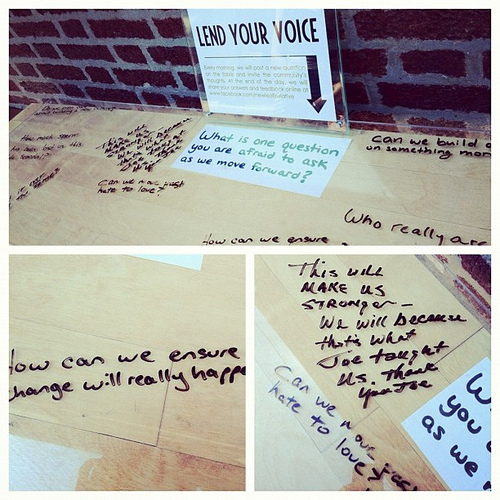 LEND YOUR VOICE
Every morning, we will post a new question
on the table and invite the community's
thoughts. At the end of the day, we will
share your answers and feedback online at
What is one question
you are afraid to ask
as we move forward?
Can we build
on something mor
How much
Can we move past
hate to love?
Who really are
How can we ensure
How can we ensure
change will really happe
This will
MAKE US
STRONGER —
We will because
that's what
Joe taught
us. Thank
you Joe
Can we move past
hate to love
W
you
as we